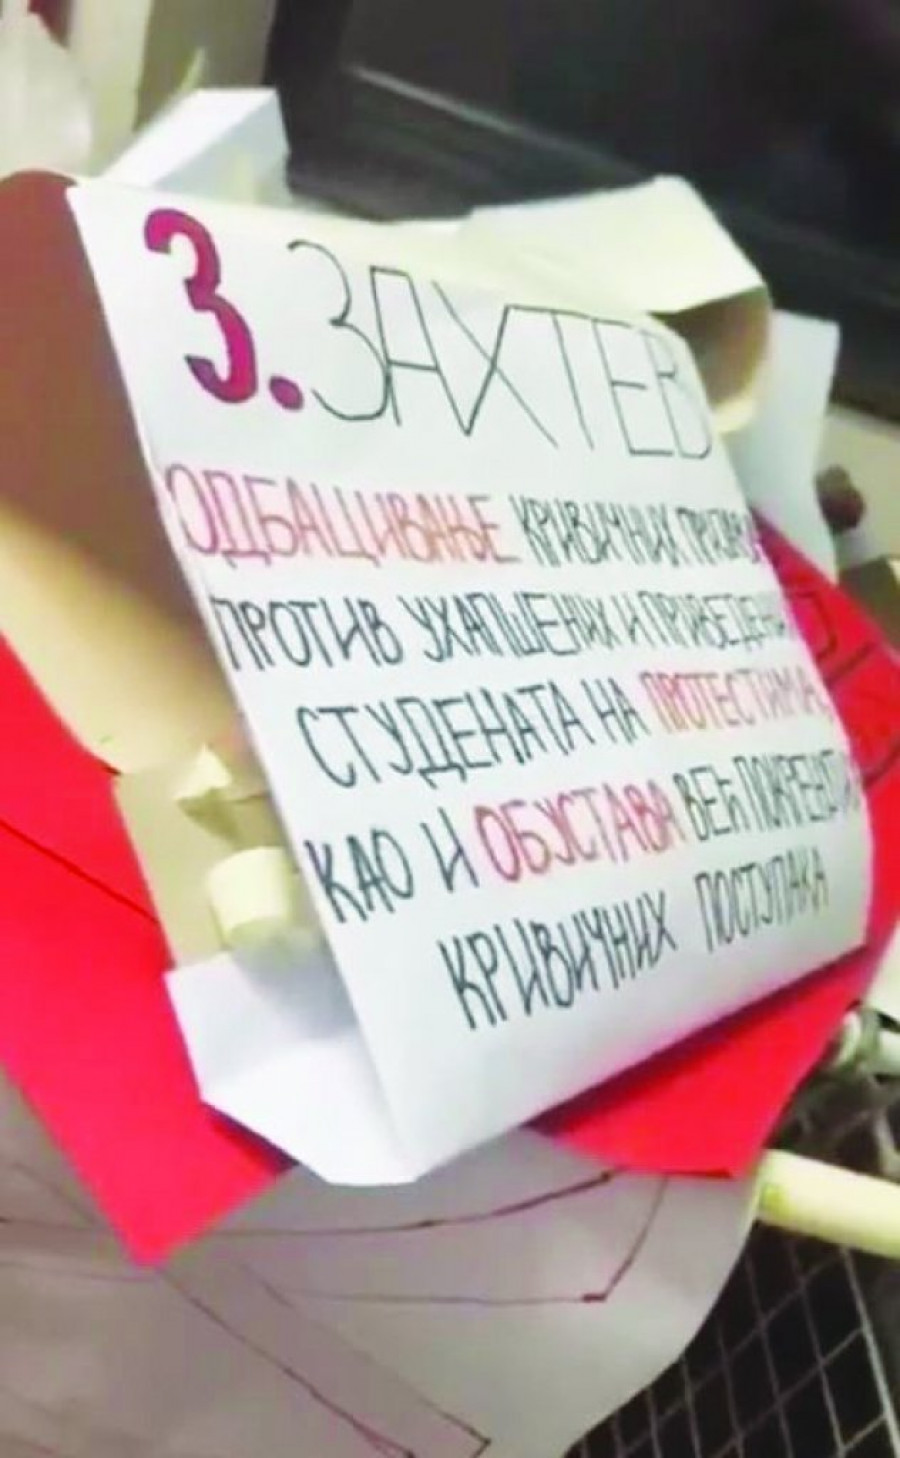 3. ЗАХТЕВ
ОДБАЦИВАЊЕ КРИВИЧНИХ
ПРОТИВ УХАПШЕНИХ И ПРИВЕДЕНИ
СТУДЕНАТА НА ПРОТЕСТИМА,
КАО И ОБУСТАВА ВЕЋ ПОКРЕНУТ
КРИВИЧНИХ ПОСТУПАКА